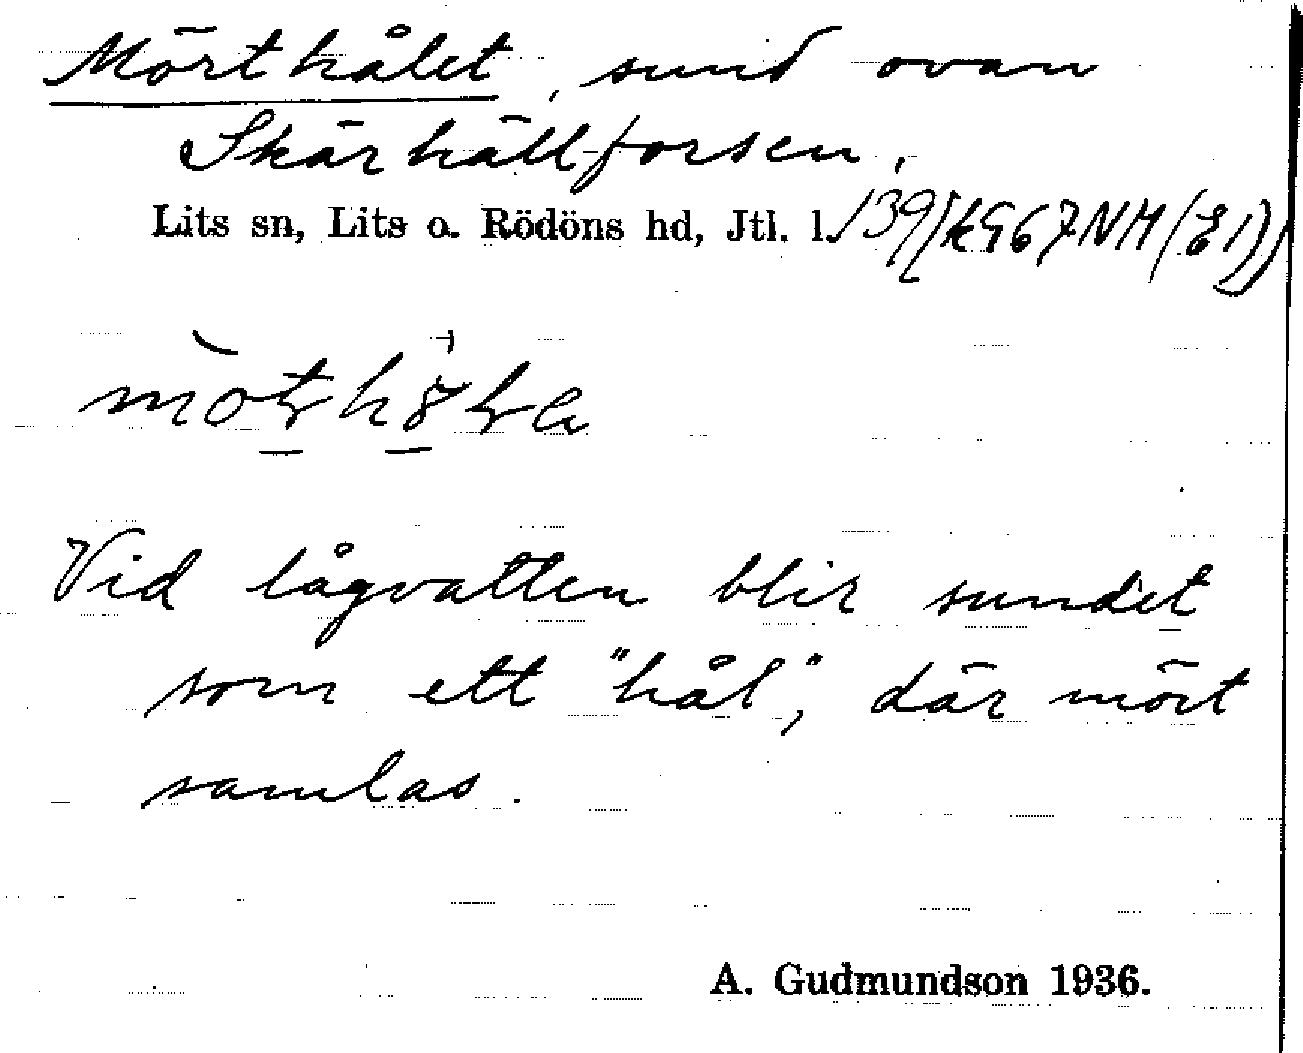 Mörthålet, sund ovan
Skärhällforsen.
Lits sn, Lits o. Rödöns hd, Jtl. l.
Vid lågvatten blir sundet
som ett "hål", där mört
samlas.
A. Gudmundson 1936.